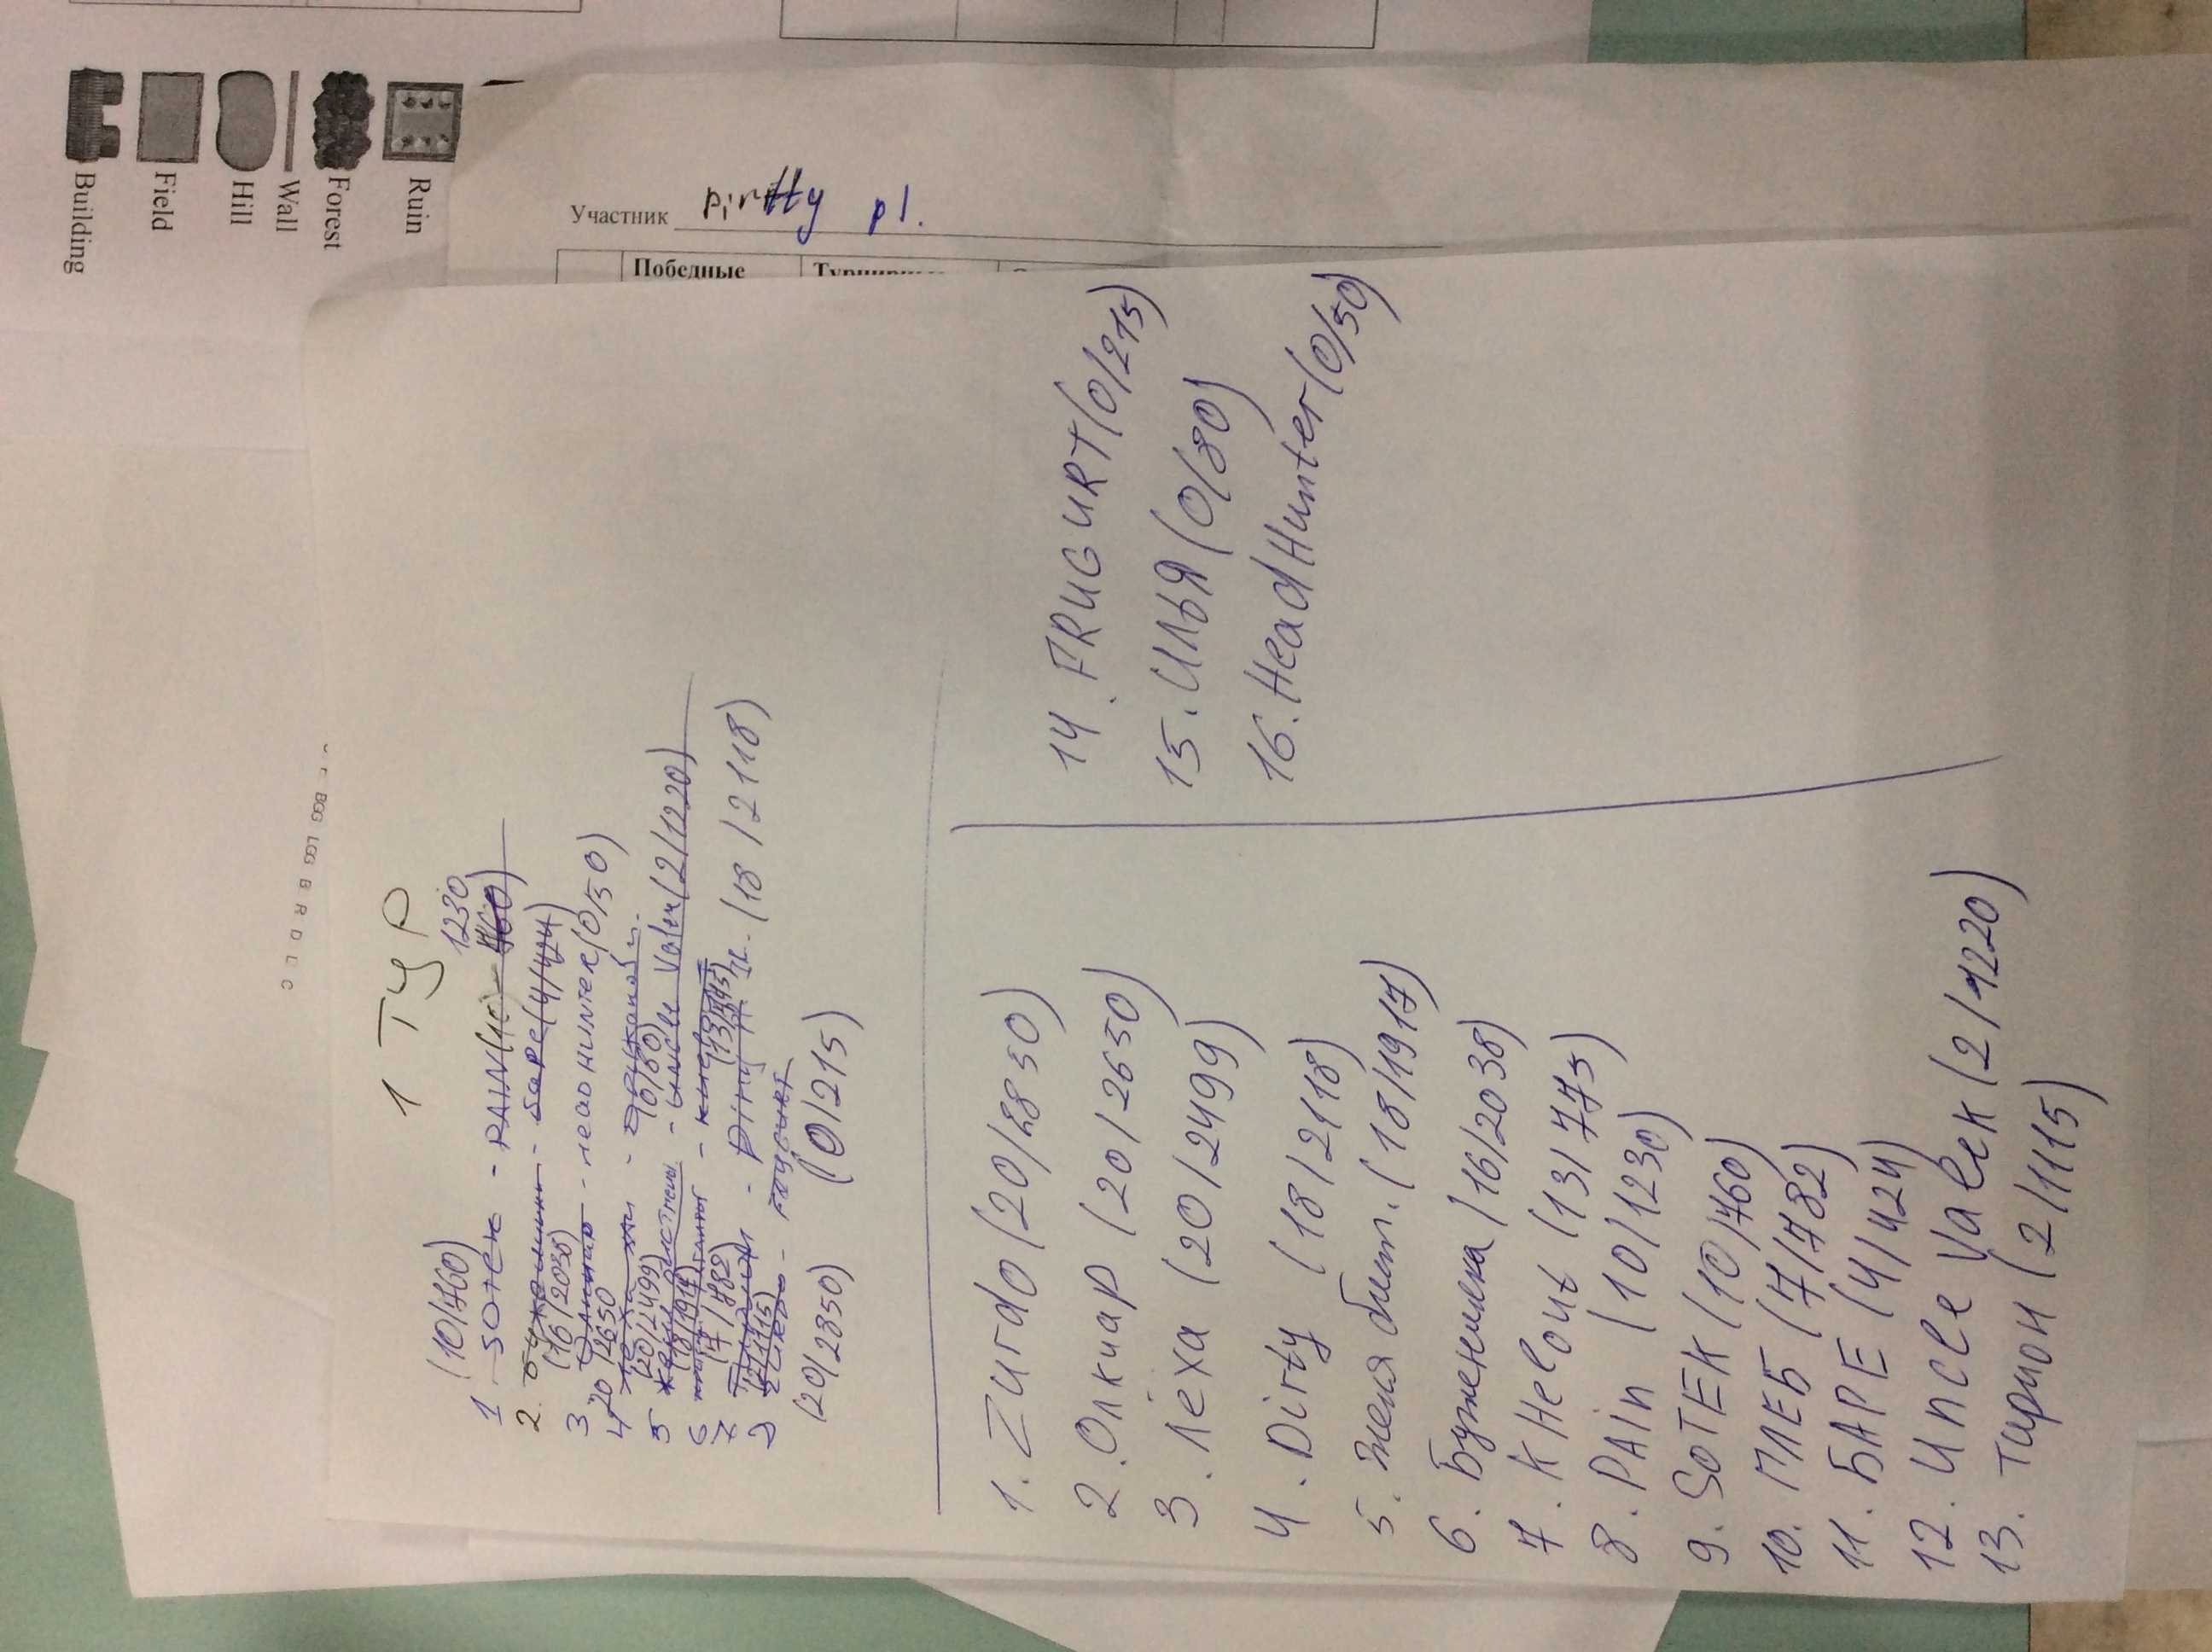 Building
Field
Hill
Wall
Forest
Ruin
Участник pl.
Победные
1 ТУР
(10/460) 1230
1 SOTEK - PAIN(10)
2. - БАРЕ(4/424)
(16/2038)
3 - HEADHUNTER(0/50)
20/2650
4 -
(20/2499) (0/80)
5 - Uncle Valek(2/1220)
(18/1917)
6 -
(7/782) (13/775)
7 - Dirty (18/2118)
(2/1115)
8 - FRUGURT
(20/2850) (0/215)
1. Zurdo (20/2850)
2. Олкиар (20/2650)
3. Лёха (20/2499)
4. Dirty (18/2118)
5. Женя бит. (18/1917)
6. Буженинка (16/2038)
7. KHelout (13/775)
8. PAIN (10/1230)
9. SOTEK (10/460)
10. ПЛЕБ (7/782)
11. БАРЕ (4/424)
12. Uncle Valek (2/1220)
13. Тирион (2/1115)
14. FRUGURT (0/215)
15. ИЛЬЯ (0/80)
16. HeadHunter (0/50)